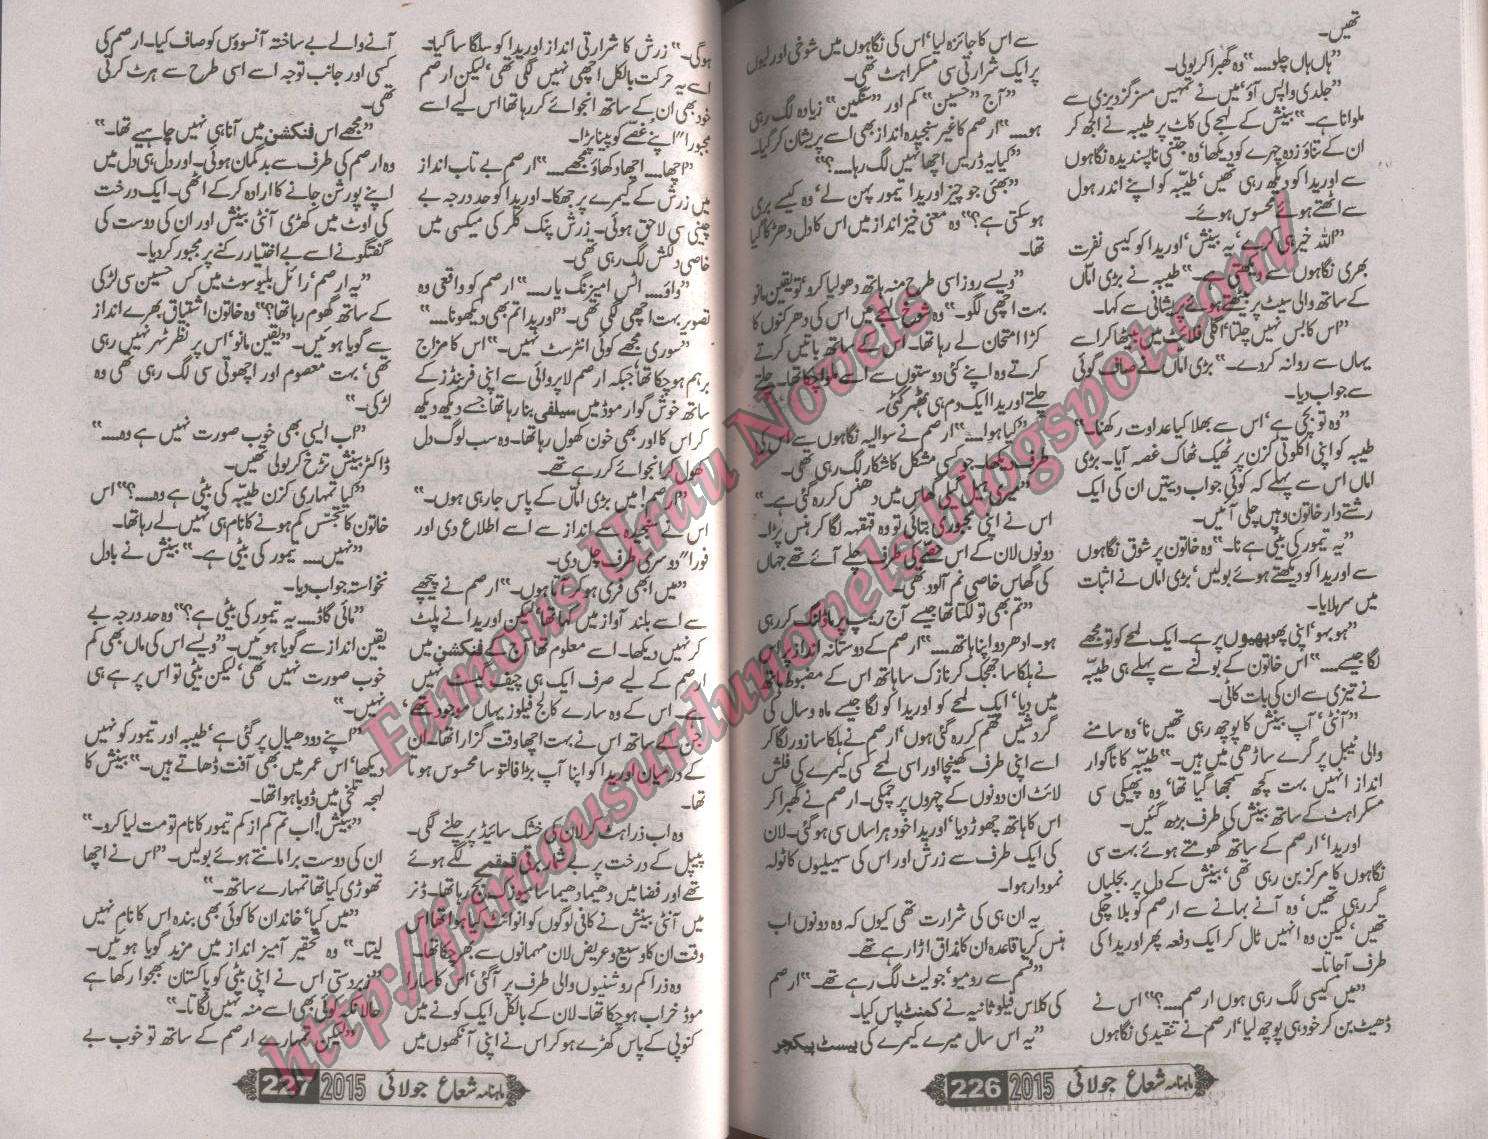 تھیں۔
”ہاں ہاں چلو....“ وہ گھبرا کر بولی۔
”جلدی واپس آؤ‘ میں نے تمہیں مسز گردیزی سے
ملوانا ہے۔“ بینش کے لہجے کی کاٹ پر طیبہ نے الجھ کر
ان کے تناؤ زدہ چہرے کو دیکھا‘ وہ جتنی ناپسندیدہ نگاہوں
سے اوریدا کو دیکھ رہی تھیں‘ طیبہ کو اپنے اندر ہول
سے اٹھتے ہوئے محسوس ہوئے۔
”اللہ خیر ہی کرے‘ یہ بینش‘ اوریدا کو کیسی نفرت
بھری نگاہوں سے دیکھتی ہے۔“ طیبہ نے بڑی اماں
کے ساتھ والی سیٹ پر بیٹھتے ہوئے پریشانی سے کہا۔
”اس کا بس نہیں چلتا‘ اگلی فلائٹ میں بیٹھا کر اسے
یہاں سے روانہ کر دے۔“ بڑی اماں نے صاف گوئی
سے جواب دیا۔
”وہ تو بچی ہے‘ اس سے بھلا کیا عداوت رکھنا۔“
طیبہ کو اپنی اکلوتی کزن پر ٹھیک ٹھاک غصہ آیا۔ بڑی
اماں اس سے پہلے کہ کوئی جواب دیتیں ان کی ایک
رشتے دار خاتون وہیں چلی آئیں۔
”یہ تیمور کی بیٹی ہے نا۔“ وہ خاتون پر شوق نگاہوں
سے اوریدا کو دیکھتے ہوئے بولیں‘ بڑی اماں نے اثبات
میں سر ہلایا۔
”ہو بہو‘ اپنی پھوپھیوں پر ہے۔ ایک لمحے کو تو مجھے
لگا جیسے....“ اس خاتون کے بولنے سے پہلے ہی طیبہ
نے تیزی سے ان کی بات کاٹی۔
”آنٹی‘ آپ بینش کا پوچھ رہی تھیں نا‘ وہ سامنے
والی ٹیبل پر گرے ساڑھی میں ہیں۔“ طیبہ کا ناگوار
انداز انہیں بہت کچھ سمجھا گیا تھا‘ وہ پھیکی سی
مسکراہٹ کے ساتھ بینش کی طرف بڑھ گئیں۔
اوریدا‘ ارصم کے ساتھ گھومتے ہوئے بہت سی
نگاہوں کا مرکز بن رہی تھی‘ بینش کے دل پر بجلیاں
گر رہی تھیں‘ وہ آنے بہانے سے ارصم کو بلا چکی
تھیں‘ لیکن وہ انہیں ٹال کر ایک دفعہ پھر اوریدا کی
طرف آجاتا۔
”میں کیسی لگ رہی ہوں ارصم....؟“ اس نے
ڈھیٹ بن کر خود ہی پوچھ لیا‘ ارصم نے تنقیدی نگاہوں
سے اس کا جائزہ لیا‘ اس کی نگاہوں میں شوخی اور لبوں
پر ایک شرارتی سی مسکراہٹ تھی۔
”آج ”حسین“ کم اور ”سنگین“ زیادہ لگ رہی
ہو....“ ارصم کا غیر سنجیدہ انداز بھی اسے پریشان کر گیا۔
”کیا یہ ڈریس اچھا نہیں لگ رہا....؟“
”بھئی جو چیز اوریدا تیمور پہن لے‘ وہ کیسے بری
ہو سکتی ہے؟“ وہ معنی خیز انداز میں اس کا دل دھڑکا گیا
تھا۔
”ویسے روز اسی طرح منہ ہاتھ دھو لیا کرو‘ تو یقین مانو
بہت اچھی لگو۔“ وہ شوخ لہجے میں اس کی دھڑکنوں کا
کڑا امتحان لے رہا تھا۔ اس کے ساتھ باتیں کرتے
کرتے وہ اپنے کئی دوستوں سے اسے ملوا چکا تھا۔ چلتے
چلتے اوریدا ایک دم ہی ٹھہر گئی۔
”کیا ہوا....“ ارصم نے سوالیہ نگاہوں سے اس کی
طرف دیکھا۔ جو کسی مشکل کا شکار لگ رہی تھی۔
”میری ہیل گیلی گھاس میں دھنس کر رہ گئی ہے۔“
اس نے اپنی مجبوری بتائی تو وہ قہقہہ لگا کر ہنس پڑا۔
دونوں لان کے اس حصے کی طرف چلے آئے تھے جہاں
کی گھاس خاصی نم آلود تھی۔
”تم بھی تو لگتا تھا جیسے آج ریمپ پر ماڈلنگ کر رہی
ہو۔ ادھر دو اپنا ہاتھ....“ ارصم کے دوستانہ انداز پر اس
نے ہلکا سا جھجک کر نازک سا ہاتھ اس کے مضبوط ہاتھ
میں دیا‘ ایک لمحے کو اوریدا کو لگا جیسے ماہ و سال کی
گردشیں تھم کر رہ گئی ہوں‘ ارصم نے ہلکا سا زور لگا کر
اسے اپنی طرف کھینچا اور اسی لمحے کسی کیمرے کی فلش
لائٹ ان دونوں کے چہروں پر چمکی۔ ارصم نے گھبرا کر
اس کا ہاتھ چھوڑ دیا‘ اوریدا خود ہراساں سی ہو گئی۔ لان
کی ایک طرف سے زرش اور اس کی سہیلیوں کا ٹولہ
نمودار ہوا۔
یہ ان ہی کی شرارت تھی کیوں کہ وہ دونوں اب
ہنس کر باقاعدہ ان کا مذاق اڑا رہے تھے۔
”قسم سے رومیو‘ جولیٹ لگ رہے تھے۔“ ارصم
کی کلاس فیلو ثانیہ نے کمنٹ پاس کیا۔
”یہ اس سال میرے کیمرے کی بیسٹ پکچر
ماہنامہ شعاع جولائی 2015 226
ہوگی۔“ زرش کا شرارتی انداز اوریدا کو سلگا سا گیا۔
اسے یہ حرکت بالکل اچھی نہیں لگی تھی‘ لیکن ارصم
خود بھی ان کے ساتھ انجوائے کر رہا تھا اس لیے اسے
مجبورا" اپنے غصے کو پینا پڑا۔
”اچھا.... اچھا دکھاؤ مجھے....“ ارصم بے تاب انداز
میں زرش کے کیمرے پر جھکا۔ اوریدا کو حد درجہ بے
چینی سی لاحق ہوئی۔ زرش پنک کلر کی میکسی میں
خاصی دلکش لگ رہی تھی۔
”واؤ.... اٹس امیزنگ یار....“ ارصم کو واقعی وہ
تصویر بہت اچھی لگی تھی۔ ”اوریدا تم بھی دیکھو نا....“
”سوری مجھے کوئی انٹرسٹ نہیں۔“ اس کا مزاج
برہم ہو چکا تھا جبکہ ارصم لاپروائی سے اپنی فرینڈز کے
ساتھ خوش گوار موڈ میں سیلفی بنا رہا تھا جسے دیکھ دیکھ
کر اس کا اور بھی خون کھول رہا تھا۔ وہ سب لوگ دل
کھول کر انجوائے کر رہے تھے۔
”ارصم! میں بڑی اماں کے پاس جا رہی ہوں۔“
اس نے سنجیدہ سے انداز سے اسے اطلاع دی اور
فورا" دوسری طرف چل دی۔
”میں ابھی فری ہو کر آتا ہوں۔“ ارصم نے پیچھے
سے اسے بلند آواز میں کہا تھا‘ لیکن اوریدا نے پلٹ
کر نہیں دیکھا۔ اسے معلوم تھا آج کے فنکشن میں
ارصم کے لیے صرف ایک ہی چیف گیسٹ نہیں
ہے۔ اس کے وہ سارے کالج فیلوز یہاں موجود تھے‘
جن کے ساتھ اس نے بہت اچھا وقت گزارا تھا۔ ان
کے درمیان اوریدا کو اپنا آپ بڑا فالتو سا محسوس ہوتا
تھا۔
وہ اب ذرا ہٹ کر لان کی خشک سائیڈ پر چلنے لگی۔
پیپل کے درخت پر بے شمار برقی قمقمے لگے ہوئے
تھے اور فضا میں دھیما دھیما سا میوزک بج رہا تھا۔ ڈنر
میں آنٹی بینش نے کافی لوگوں کو انوائٹ کیا ہوا تھا اس
وقت ان کا وسیع و عریض لان مہمانوں سے بھر چکا تھا۔
وہ ذرا کم روشنیوں والی طرف پر آگئی‘ اس کا سارا
موڈ خراب ہو چکا تھا۔ لان کے بالکل ایک کونے میں
کنوپی کے پاس کھڑے ہو کر اس نے اپنی آنکھوں میں
آنے والے بے ساختہ آنسوؤں کو صاف کیا۔ ارصم کی
کسی اور جانب توجہ اسے اسی طرح سے ہرٹ کرتی
تھی۔
”مجھے اس فنکشن میں آنا ہی نہیں چاہیے تھا۔“
وہ ارصم کی طرف سے بدگمان ہوئی۔ اور دل ہی دل میں
اپنے پورشن جانے کا ارادہ کر کے اٹھی۔ ایک درخت
کی اوٹ میں کھڑی آنٹی بینش اور ان کی دوست کی
گفتگو نے اسے بے اختیار رکنے پر مجبور کر دیا۔
”یہ ارصم‘ رائل بلیو سوٹ میں کس حسین سی لڑکی
کے ساتھ گھوم رہا تھا؟“ وہ خاتون اشتیاق بھرے انداز
سے گویا ہوئیں۔ ”یقین مانو‘ اس پر نظر ٹھہر نہیں رہی
تھی‘ بہت معصوم اور اچھوتی سی لگ رہی تھی وہ
لڑکی۔“
”اب ایسی بھی خوب صورت نہیں ہے وہ....“
ڈاکٹر بینش تڑخ کر بولی تھیں۔
”کیا تمہاری کزن طیبہ کی بیٹی ہے وہ....؟“ اس
خاتون کا تجسس کم ہونے کا نام ہی نہیں لے رہا تھا۔
”نہیں.... تیمور کی بیٹی ہے۔“ بینش نے بادل
نخواستہ جواب دیا۔
”مائی گاڈ.... یہ تیمور کی بیٹی ہے؟“ وہ حد درجہ بے
یقین انداز سے گویا ہوئیں۔ ”ویسے اس کی ماں بھی کم
خوب صورت نہیں تھی‘ لیکن بیٹی تو اس پر ہے ہی
نہیں۔“
”اپنے ددھیال پر گئی ہے‘ طیبہ اور تیمور کو نہیں
دیکھا‘ اس عمر میں بھی آفت ڈھاتے ہیں۔“ بینش کا
لہجہ تلخی میں ڈوبا ہوا تھا۔
”بینش! اب تم کم از کم تیمور کا نام تو مت لیا کرو۔“
ان کی دوست برا مانتے ہوئے بولیں۔ ”اس نے اچھا
تھوڑی کیا تھا تمہارے ساتھ۔“
”میں کیا‘ خاندان کا کوئی بھی بندہ اس کا نام نہیں
لیتا۔“ وہ تحقیر آمیز انداز میں مزید گویا ہوئیں۔
”زبردستی اس نے اپنی بیٹی کو پاکستان بھجوا رکھا ہے
حالانکہ کوئی بھی اسے منہ نہیں لگاتا۔“
”لیکن تمہارے ارصم کے ساتھ تو خوب بے
ماہنامہ شعاع جولائی 2015 227
Famous Urdu Novels
http://famousurdunovels.blogspot.com/